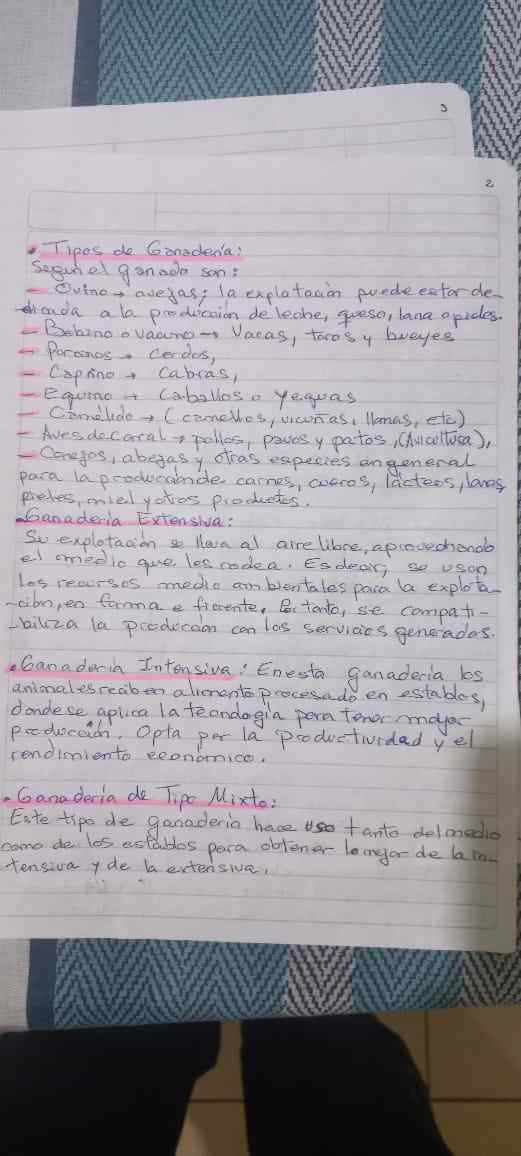 3
2
• Tipos de Ganadería:
Según el ganado son:
- Ovino → avejas; la explotación puede estar de-
dicada a la producción de leche, queso, lana o pieles.
- Bobino o vacuno → Vacas, toros y bueyes
- Porcinos → Cerdos,
- Caprino → Cabras,
- Equino → Caballos o Yeguas
- Camélido → (camellos, vicuñas, llamas, etc)
- Aves de corral → pollos, pavos y patos, (Avicultura),
- Conejos, abejas y otras especies en general
para la producción de carnes, cueros, lácteos, lanas,
pieles, miel y otros productos.
• Ganadería Extensiva:
Su explotación se lleva al aire libre, aprovechando
el medio que les rodea. Es decir, se usan
los recursos medio ambientales para la explota-
-ción, en forma eficiente, tanto, se compati-
-biliza la producción con los servicios generados.
• Ganadería Intensiva: En esta ganadería los
animales reciben alimento procesado en establos,
donde se aplica la tecnología para tener mayor
producción. Opta por la productividad y el
rendimiento económico.
• Ganadería de Tipo Mixto:
Este tipo de ganadería hace uso tanto del medio
como de los establos para obtener lo mejor de la in-
tensiva y de la extensiva.